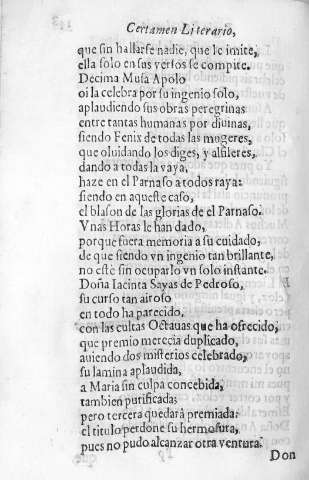 Certamen Literario,
que sin hallarse nadie, que le imite,
ella solo en sus versos se compite.
Decima Musa Apolo
oi la celebra por su ingenio solo,
aplaudiendo sus obras peregrinas
entre tantas humanas por diuinas,
siendo Fenix de todas las mogeres,
que oluidando los diges, y alfileres,
dando a todas la vaya,
haze en el Parnaso a todos raya:
siendo en aqueste caso,
el blason de las glorias de el Parnaso.
Vnas Horas le han dado,
porque fuera memoria a su cuidado,
de que siendo vn ingenio tan brillante,
no estè sin ocuparlo vn solo instante.
Doña Iacinta Sayas de Pedroso,
su curso tan airoso
en todo ha parecido,
con las cultas Octauas que ha ofrecido,
que premio merecia duplicado,
auiendo dos misterios celebrado,
su lamina aplaudida,
a Maria sin culpa concebida,
tambien purificada;
pero tercera quedarà premiada:
el titulo perdone su hermosura,
pues no pudo alcanzar otra ventura.
Don